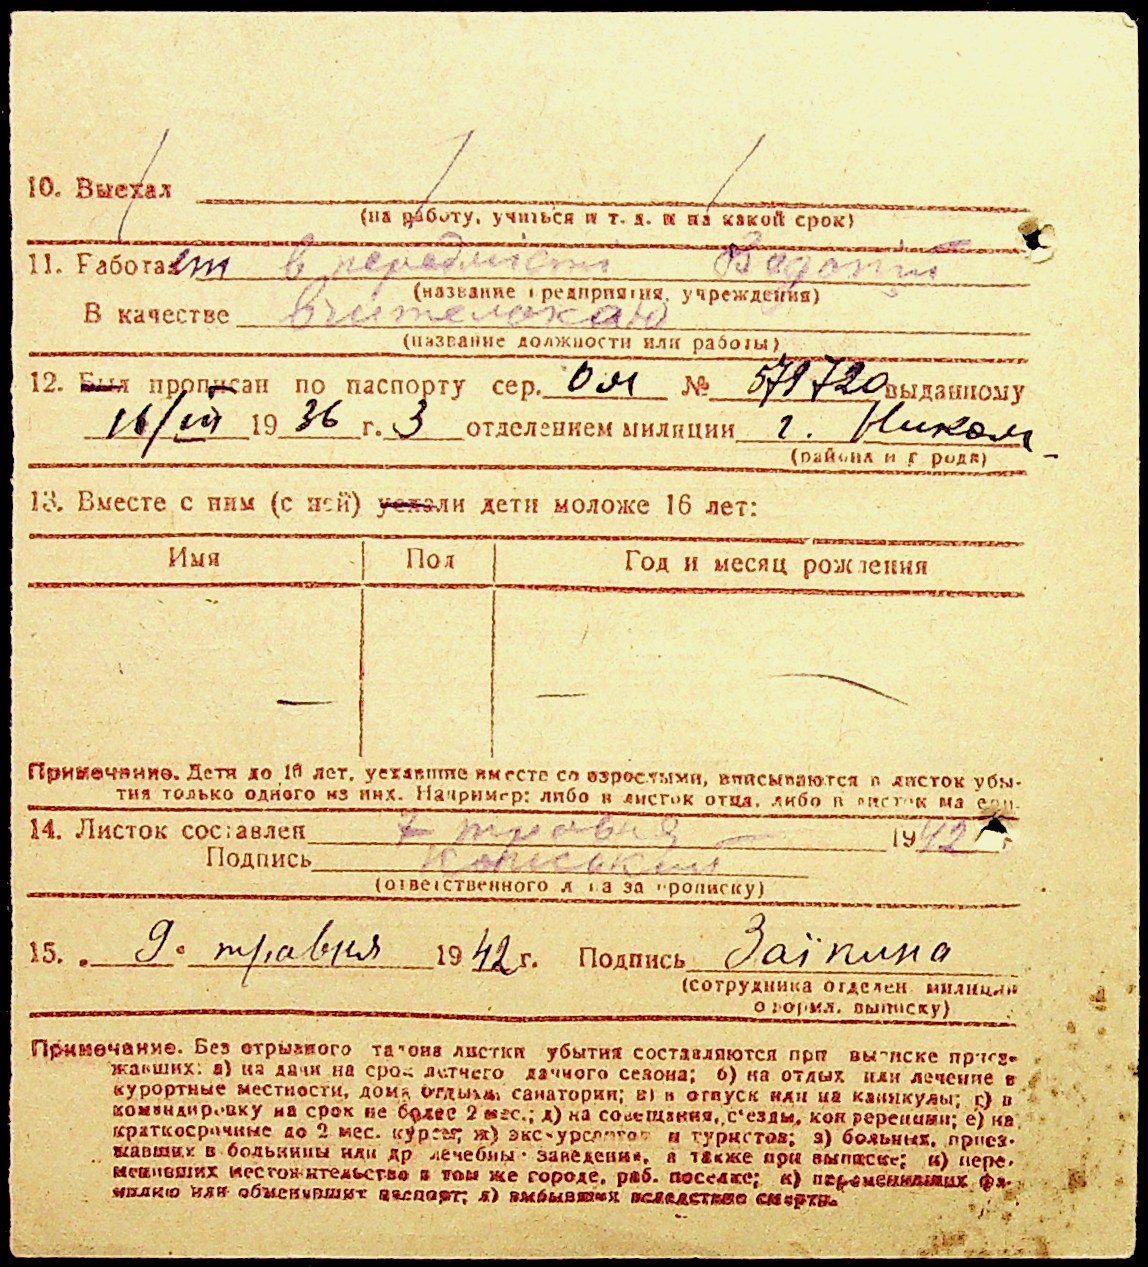 10. Выехал
(на работу, учиться и т. д. и на какой срок)
11. Работает в передмісті Водопій
(название предприятия, учреждения)
В качестве вчителькою
(название должности или работы)
12. Был прописан по паспорту сер. ОМ № 579720 выданному
16/III 1936 г. 3 отделением милиции г. Никол
(района и города)
13. Вместе с ним (с ней) уехали дети моложе 16 лет:
Имя Пол Год и месяц рождения
— — —
Примечание. Дети до 16 лет, уехавшие вместе со взрослыми, вписываются в листок убы-
тия только одного из них. Например: либо в листок отца, либо в листок ма
14. Листок составлен 7 травня 1942 г.
Подпись
(ответственного лица за прописку)
15. 9. травня 1942 г. Подпись Заїкина
(сотрудника отделен. милиции
оформл. выписку)
Примечание. Без отрывного талона листки убытия составляются при выписке приез-
жавших: а) на дачи на срок летнего дачного сезона; б) на отдых или лечение в
курортные местности, дома отдыха, санатории; в) в отпуск или на каникулы; г) в
командировку на срок не более 2 мес.; д) на совещания, съезды, конференции; е) на
краткосрочные до 2 мес. курсы; ж) экскурсантов и туристов; з) больных, приез-
жавших в больницы или др. лечебны. заведения, а также при выписке; и) пере-
менивших местожительство в том же городе, раб. поселке; к) переменивших фа-
милию или обменявших паспорт; л) выбывших вследствие смерти.